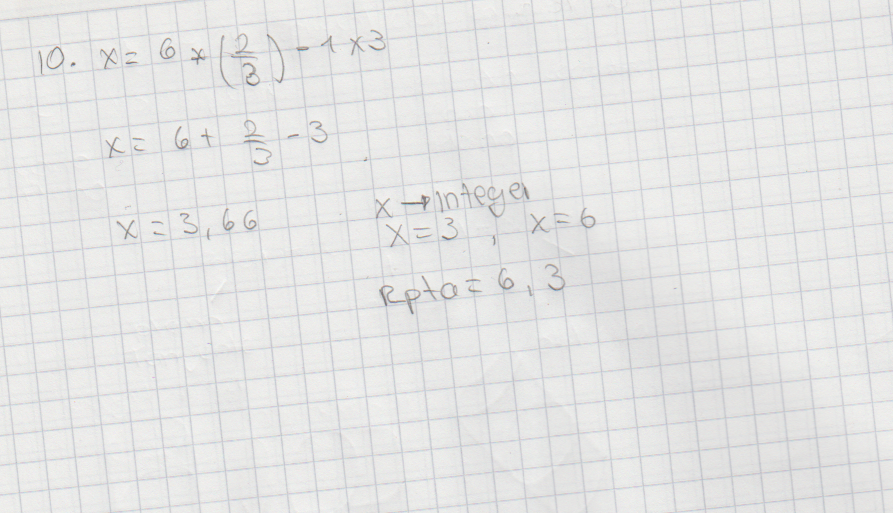 10. x = 6 * (2/3) - 1 x 3
x = 6 + 2/3 - 3
x = 3,66
x → integer
x = 3 , x = 6
Rpta = 6, 3